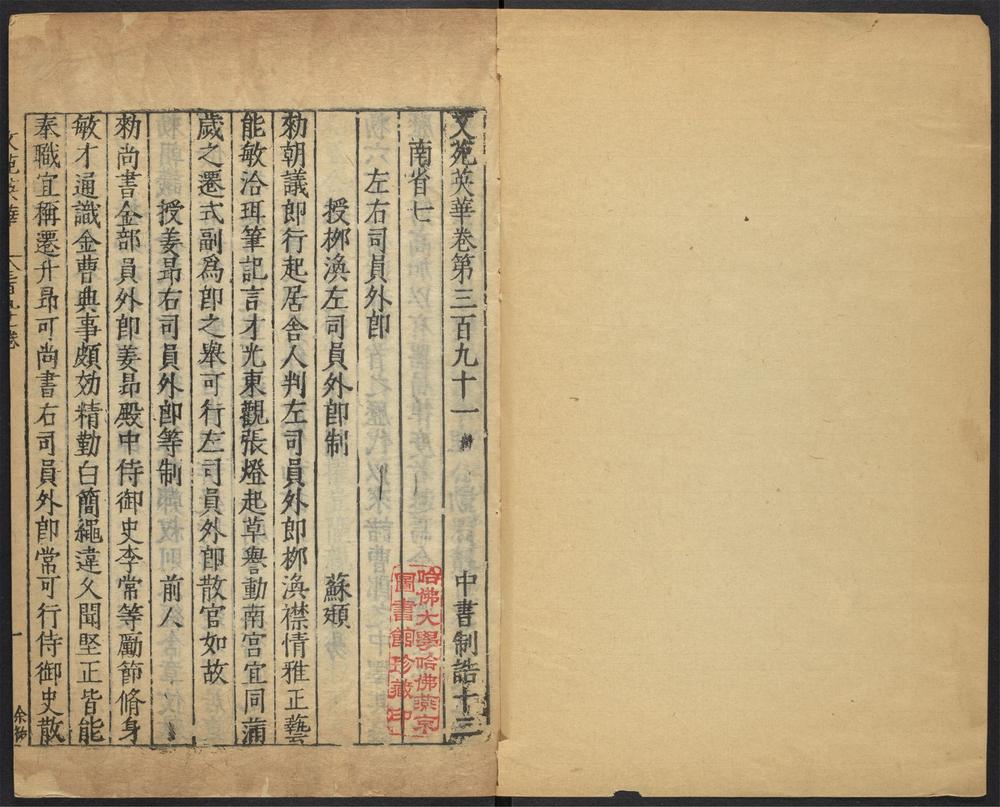 文苑英華卷第三百九十一 中書制誥十三
南省七
左右司員外郎
授栁渙左司員外郎制 蘇頲
勑朝議郎行起居舍人判左司員外郎栁渙襟情雅正藝
能敏洽珥筆記言才光東觀張燈起草譽動南宮宜同蒲
歲之遷式副爲郎之舉可行左司員外郎散官如故
授姜昂右司員外郎等制 前人
勑尚書金部員外郎姜昂殿中侍御史李常等勵節脩身
敏才通識金曹典事頗効精勤白簡繩違乆聞堅正皆能
奉職宜稱遷升昂可尚書右司員外郎常可行侍御史散
文苑英華 三百九十一卷
一
哈佛大學哈佛燕京
圖書館珍藏印